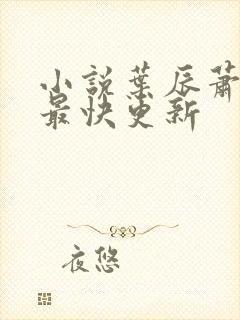 小說葉辰蕭
最快更新
夜悠